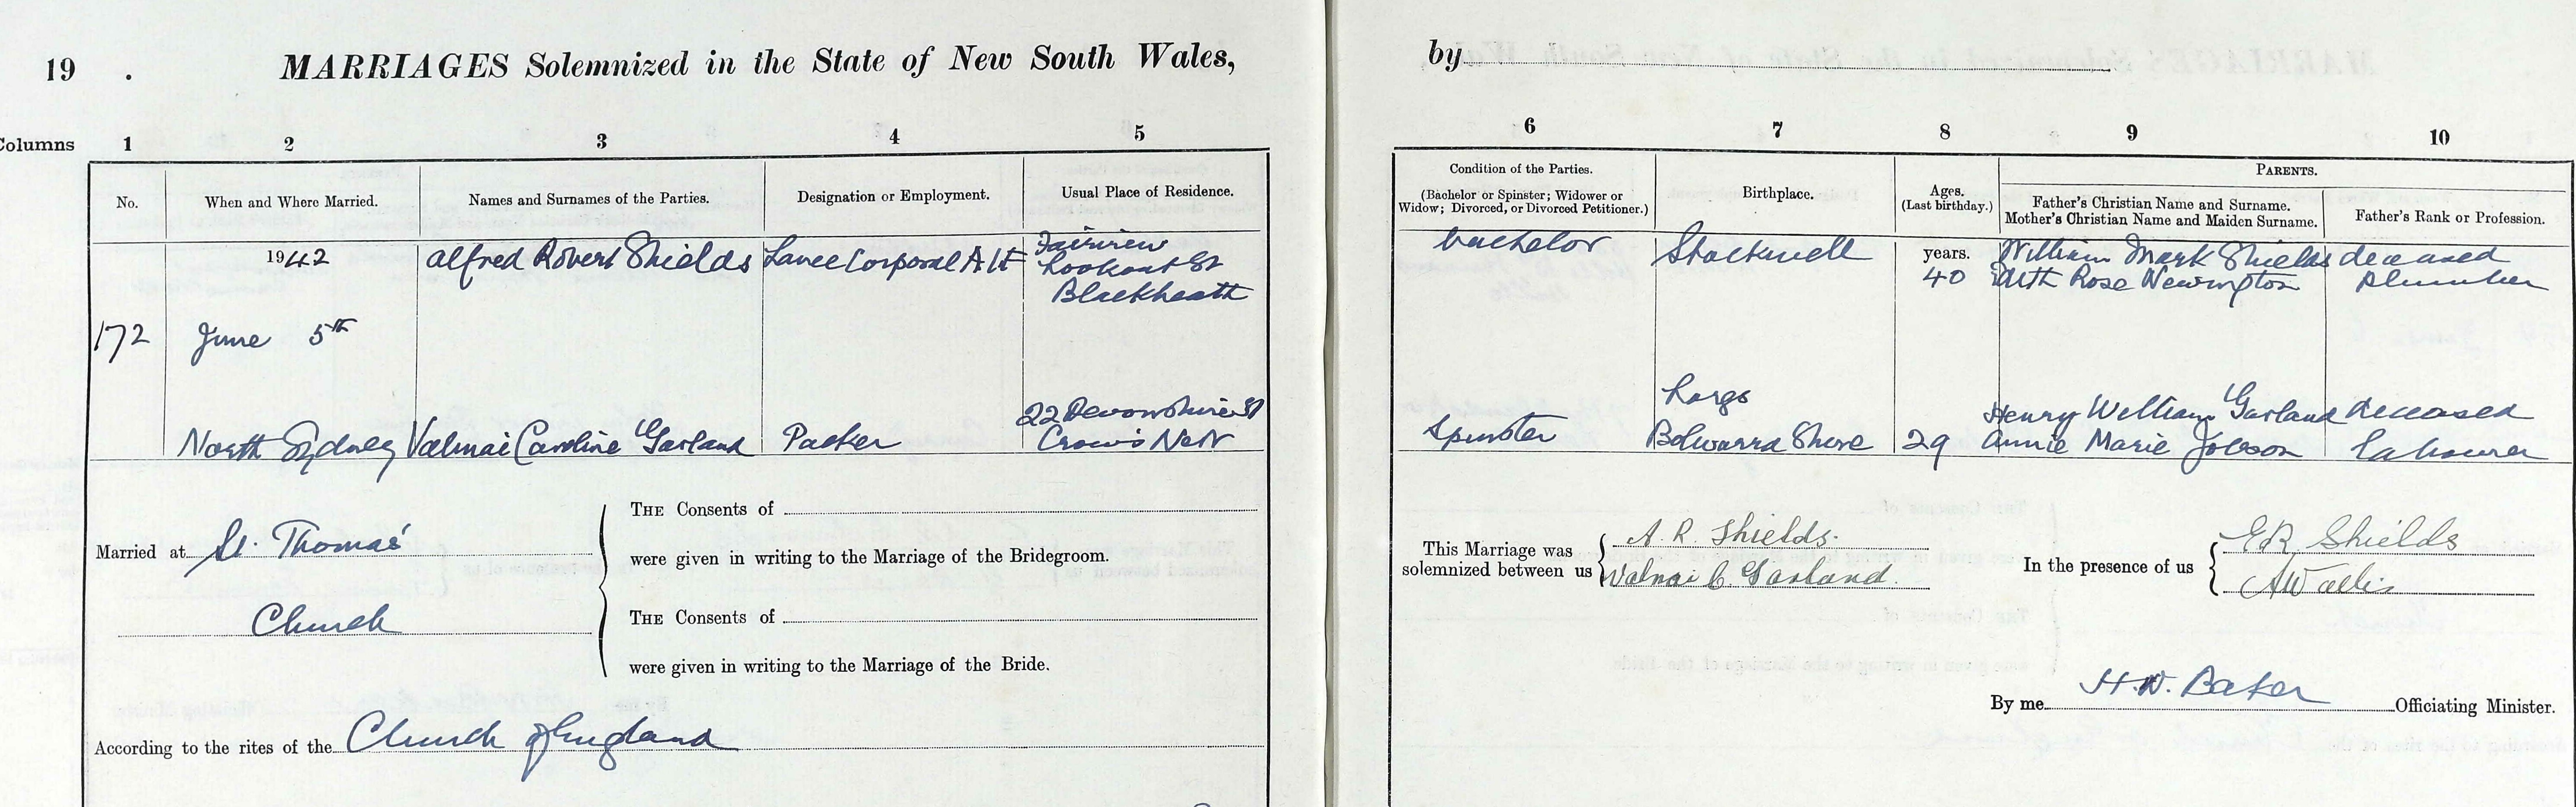 19 . MARRIAGES Solemnized in the State of New South Wales, by
Columns 1 2 3 4 5 6 7 8 9 10
No. When and Where Married. Names and Surnames of the Parties. Designation or Employment. Usual Place of Residence.
Condition of the Parties.
(Bachelor or Spinster; Widower or
Widow; Divorced, or Divorced Petitioner.)
Birthplace.
Ages.
(Last birthday.)
PARENTS.
Father's Christian Name and Surname.
Mother's Christian Name and Maiden Surname.
Father's Rank or Profession.
1942 Alfred Robert Shields Lance Corporal A I F Fairview
Lookout St
Blackheath
bachelor Stockwell years.
40
William Mark Shields deceased
Edith Rose Newington plumber
172 June 5th
North Sydney Valmai Caroline Garland Packer 22 Devonshire St
Crow's Nest
Spinster Largs
Bolwarra Shire 29
Henry William Garland deceased
Annie Marie Jobson labourer
Married at St. Thomas'
Church
THE Consents of
were given in writing to the Marriage of the Bridegroom.
THE Consents of
were given in writing to the Marriage of the Bride.
According to the rites of the Church of England
This Marriage was
solemnized between us
A. R. Shields.
Valmai C Garland.
In the presence of us
E R Shields
A Wallis
By me H. W. Baker Officiating Minister.